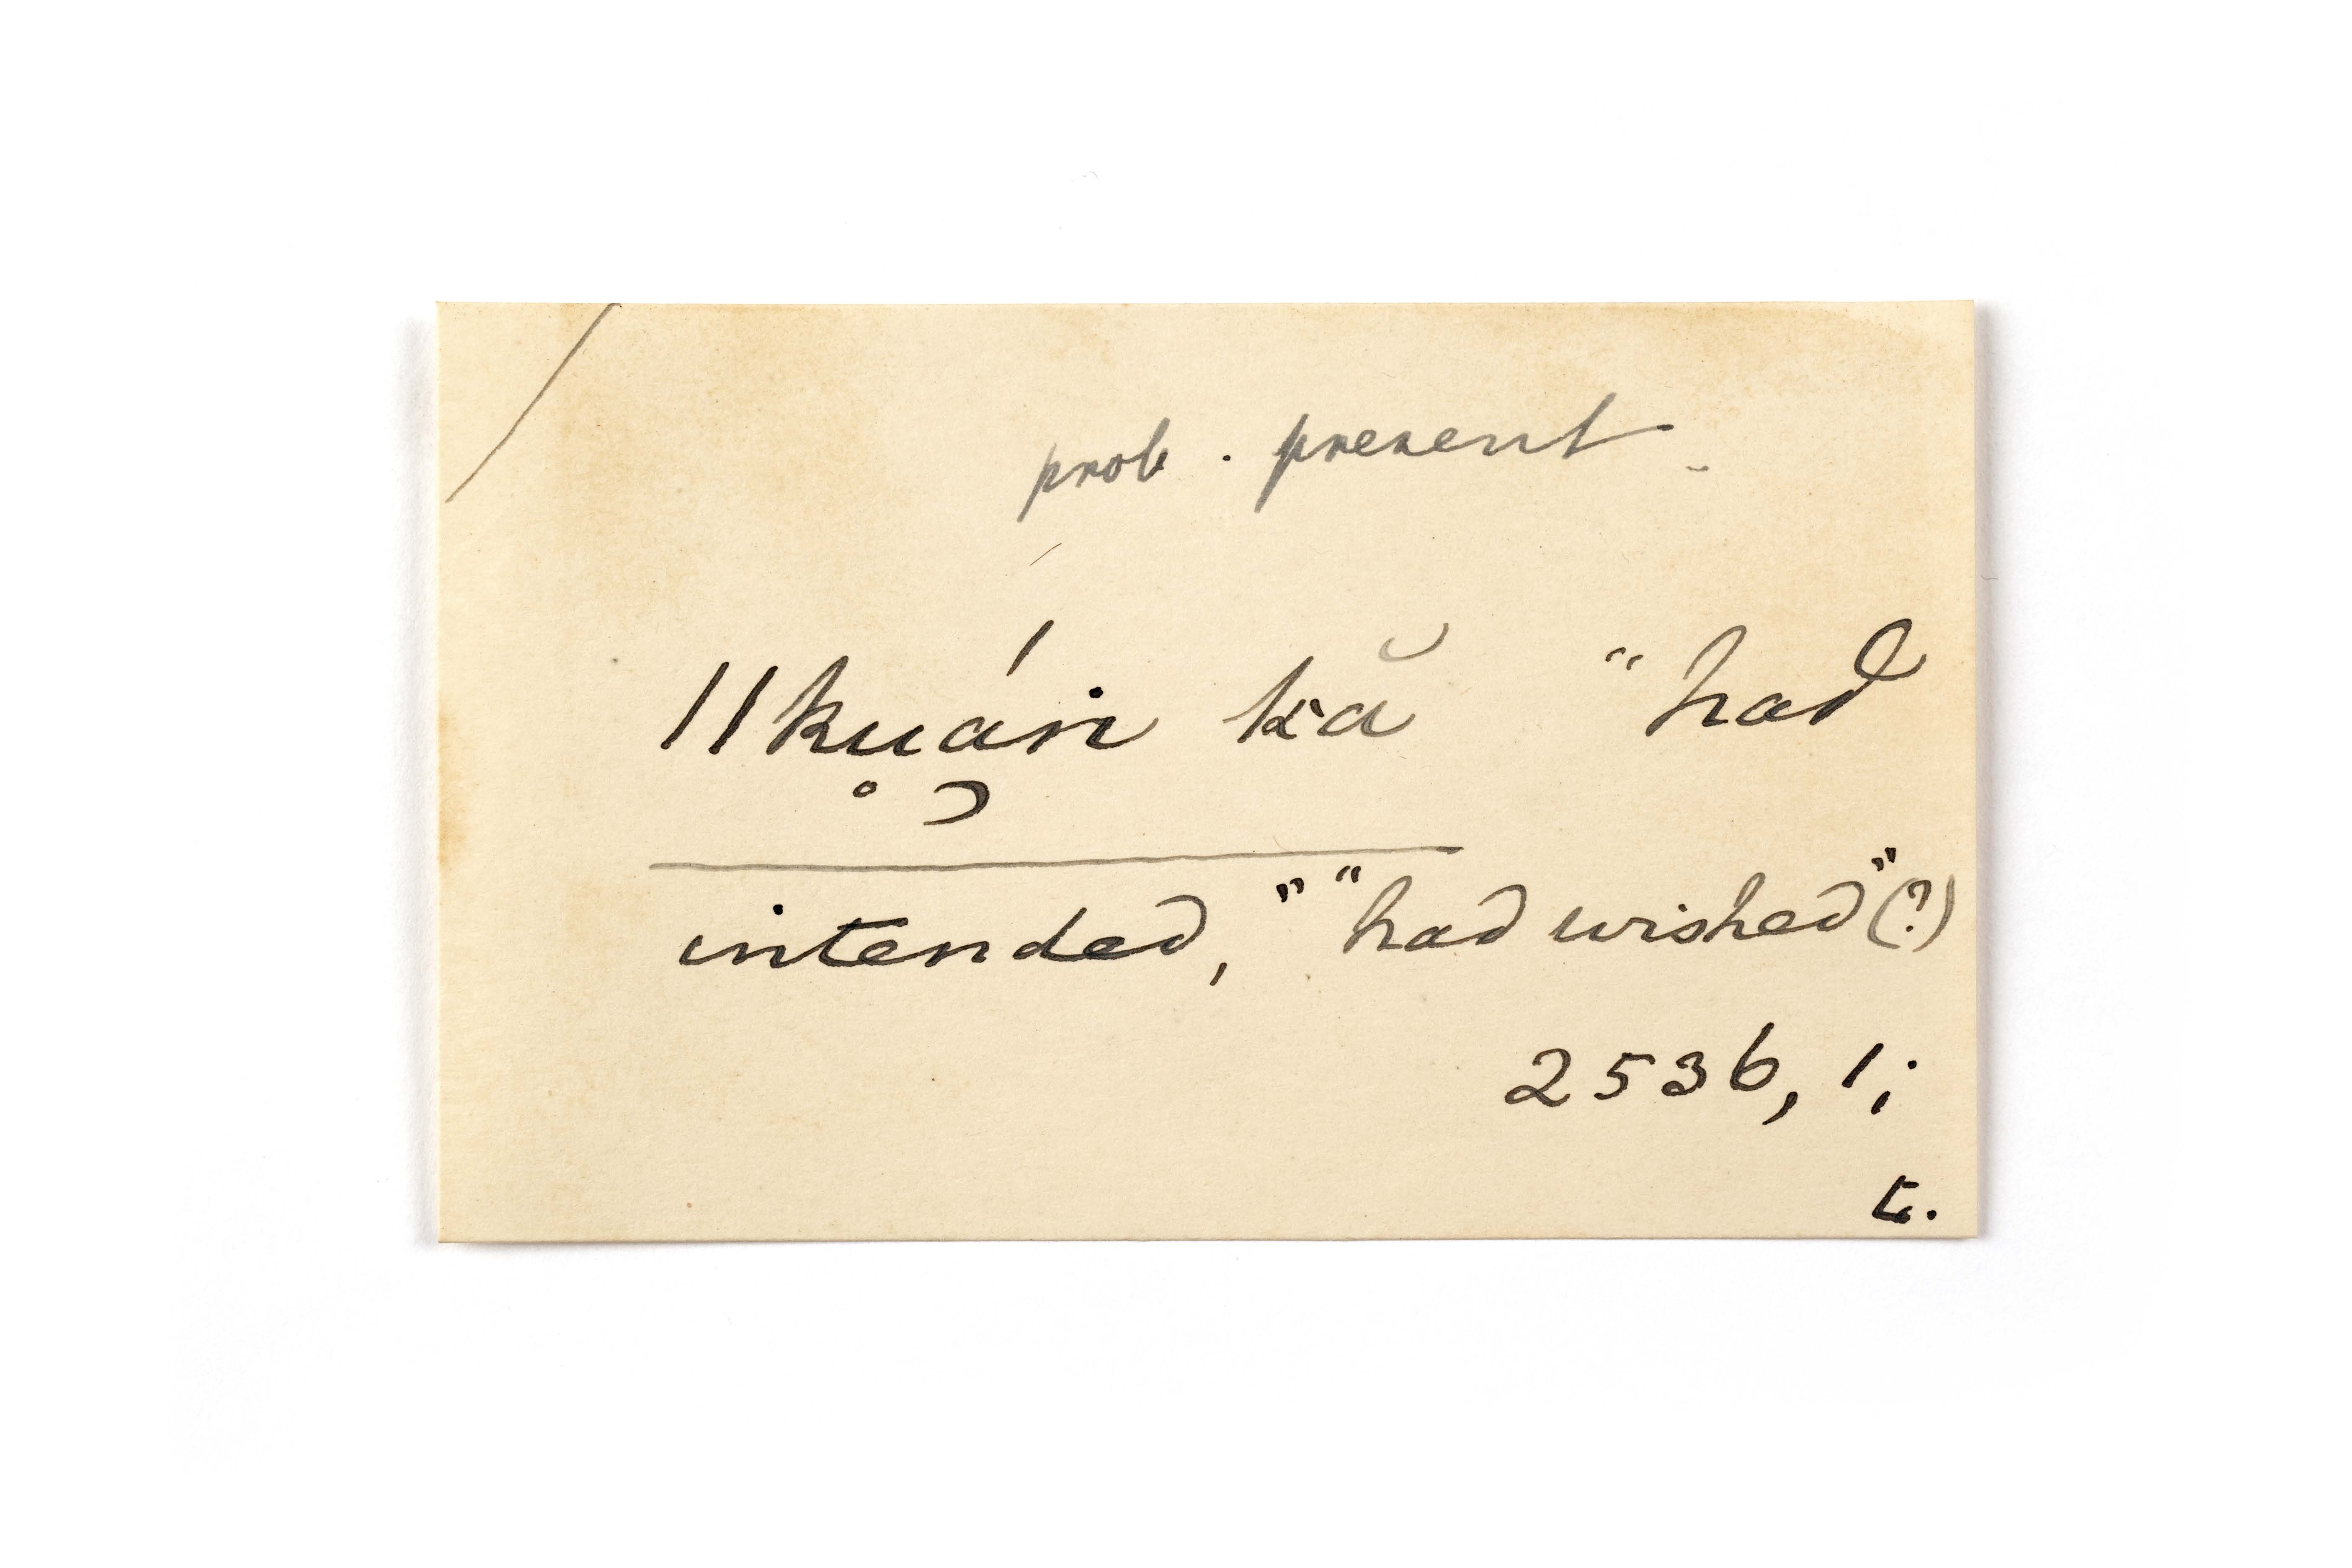 prob. present.
ǁku̥á̮ṅ kă "had
intended," "had wished"(?)
2536, 1;